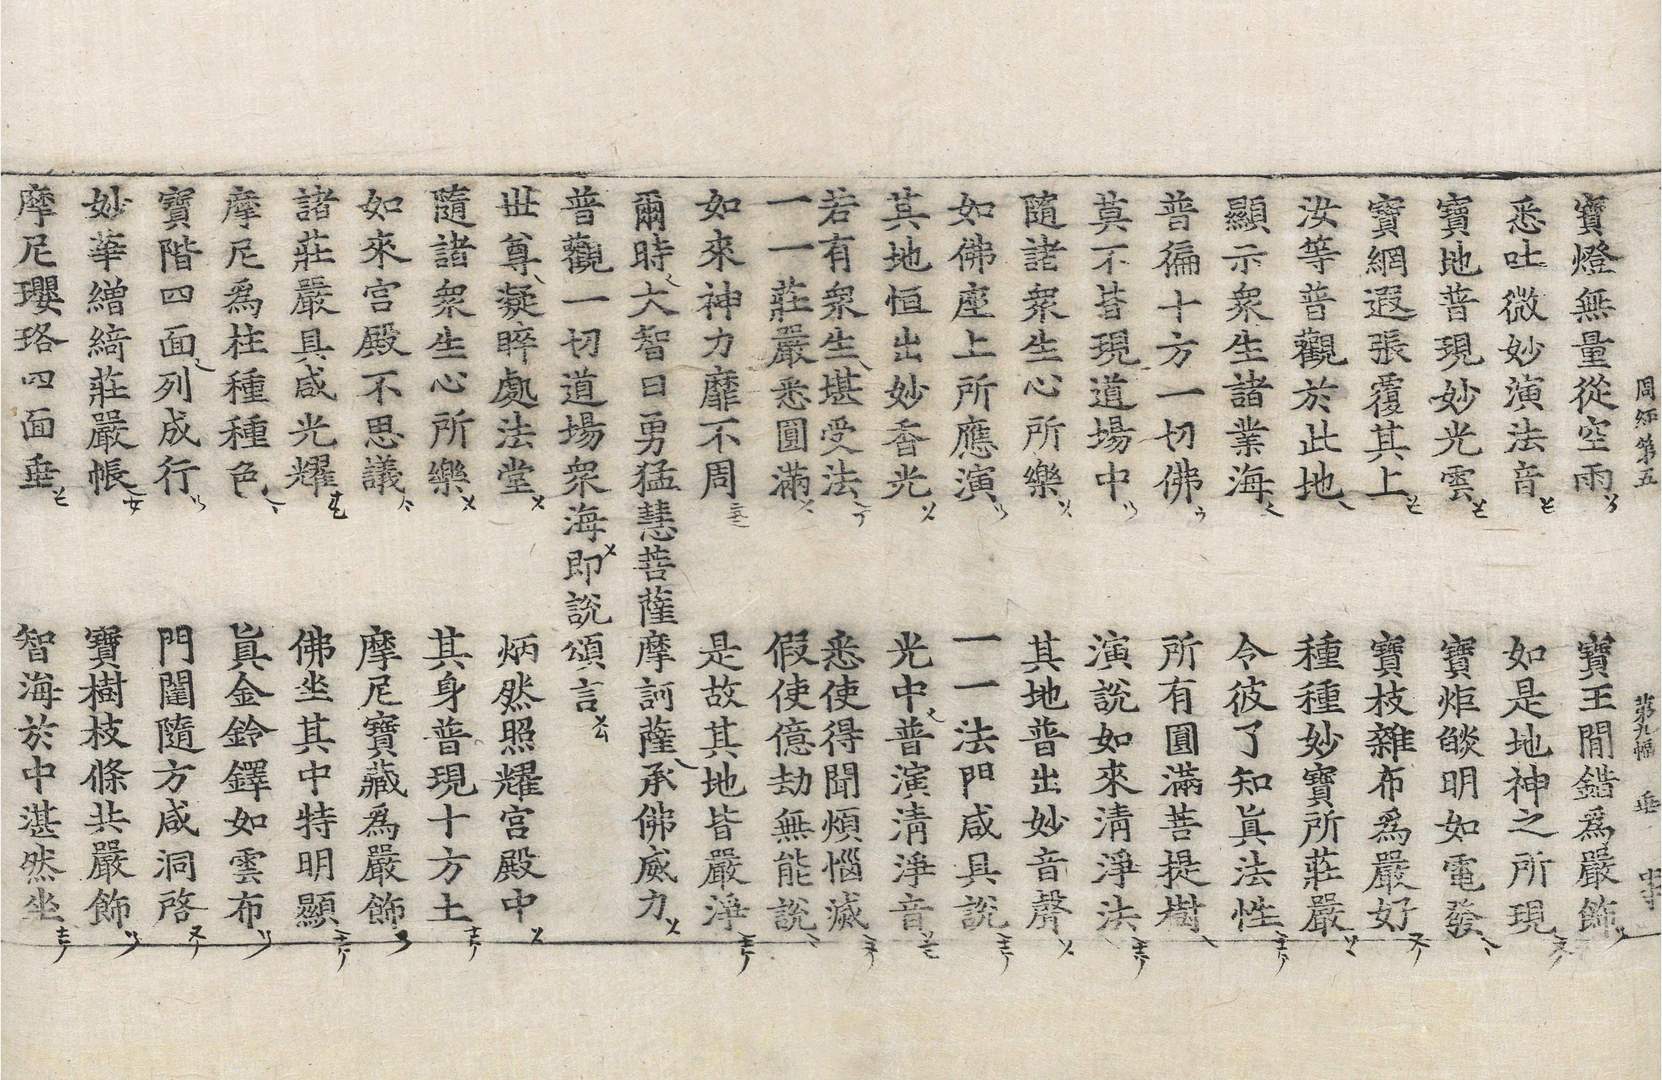 周經第五 第九幅 垂
寶燈無量從空雨 寶王間錯爲嚴飾
悉吐微妙演法音 如是地神之所現
寶地普現妙光雲 寶炬燄明如電發
寶網遐張覆其上 寶枝雜布爲嚴好
汝等普觀於此地 種種妙寶所莊嚴
顯示衆生諸業海 令彼了知眞法性
普徧十方一切佛 所有圓滿菩提樹
莫不皆現道場中 演說如來清淨法
隨諸衆生心所樂 其地普出妙音聲
如佛座上所應演 一一法門咸具說
其地恒出妙香光 光中普演清淨音
若有衆生堪受法 悉使得聞煩惱滅
一一莊嚴悉圓滿 假使億劫無能說
如來神力靡不周 是故其地皆嚴淨
爾時大智日勇猛慧菩薩摩訶薩承佛威力
普觀一切道場衆海即說頌言
世尊凝睟處法堂 炳然照耀宮殿中
隨諸衆生心所樂 其身普現十方土
如來宮殿不思議 摩尼寶藏爲嚴飾
諸莊嚴具咸光耀 佛坐其中特明顯
摩尼爲柱種種色 眞金鈴鐸如雲布
寶階四面列成行 門闥隨方咸洞啓
妙華繒綺莊嚴帳 寶樹枝條共嚴飾
摩尼瓔珞四面垂 智海於中湛然坐